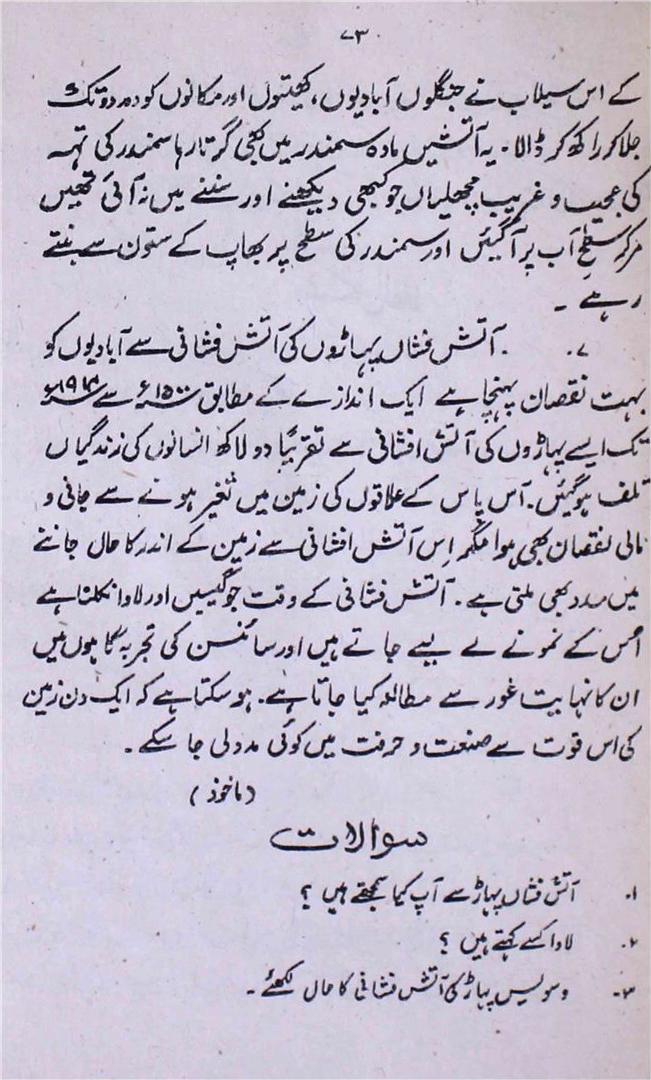 ۷۳
کے اس سیلاب نے جنگلوں آبادیوں، کھیتوں اور مکانوں کو دور دور تک
جلا کر راکھ کر ڈالا۔ یہ آتشیں مادہ سمندر میں بھی گرتا رہا سمندر کی تہہ
کی عجیب و غریب مچھلیاں جو کبھی دیکھنے اور سننے میں نہ آئی تھیں
مر کر سطح آب پر آ گئیں اور سمندر کی سطح پر بھاپ کے ستون سے بنتے
رہے ۔
۷۔ آتش فشاں پہاڑوں کی آتش فشانی سے آبادیوں کو
بہت نقصان پہنچا ہے ایک اندازے کے مطابق ۱۵۰۰ء سے ۱۹۱۴ء
تک ایسے پہاڑوں کی آتش افشانی سے تقریباً دو لاکھ انسانوں کی زندگیاں
تلف ہو گئیں۔ آس پاس کے علاقوں کی زمین میں تغیر ہونے سے جانی و
مالی نقصان بھی ہوا مگر اِس آتش افشانی سے زمین کے اندر کا حال جاننے
میں مدد بھی ملتی ہے۔ آتش فشانی کے وقت جو گیسیں اور لاوا نکلتا ہے
اُس کے نمونے لے لیے جاتے ہیں اور سائنس کی تجربہ گاہوں میں
ان کا نہایت غور سے مطالعہ کیا جاتا ہے۔ ہو سکتا ہے کہ ایک دن زمین
کی اس قوت سے صنعت و حرفت میں کوئی مدد لی جا سکے۔
(ماخوذ)
سوالات
۱۔ آتش فشاں پہاڑ سے آپ کیا سمجھتے ہیں ؟
۲۔ لاوا کسے کہتے ہیں ؟
۳۔ وسولیس پہاڑ کی آتش فشانی کا حال لکھئے ۔